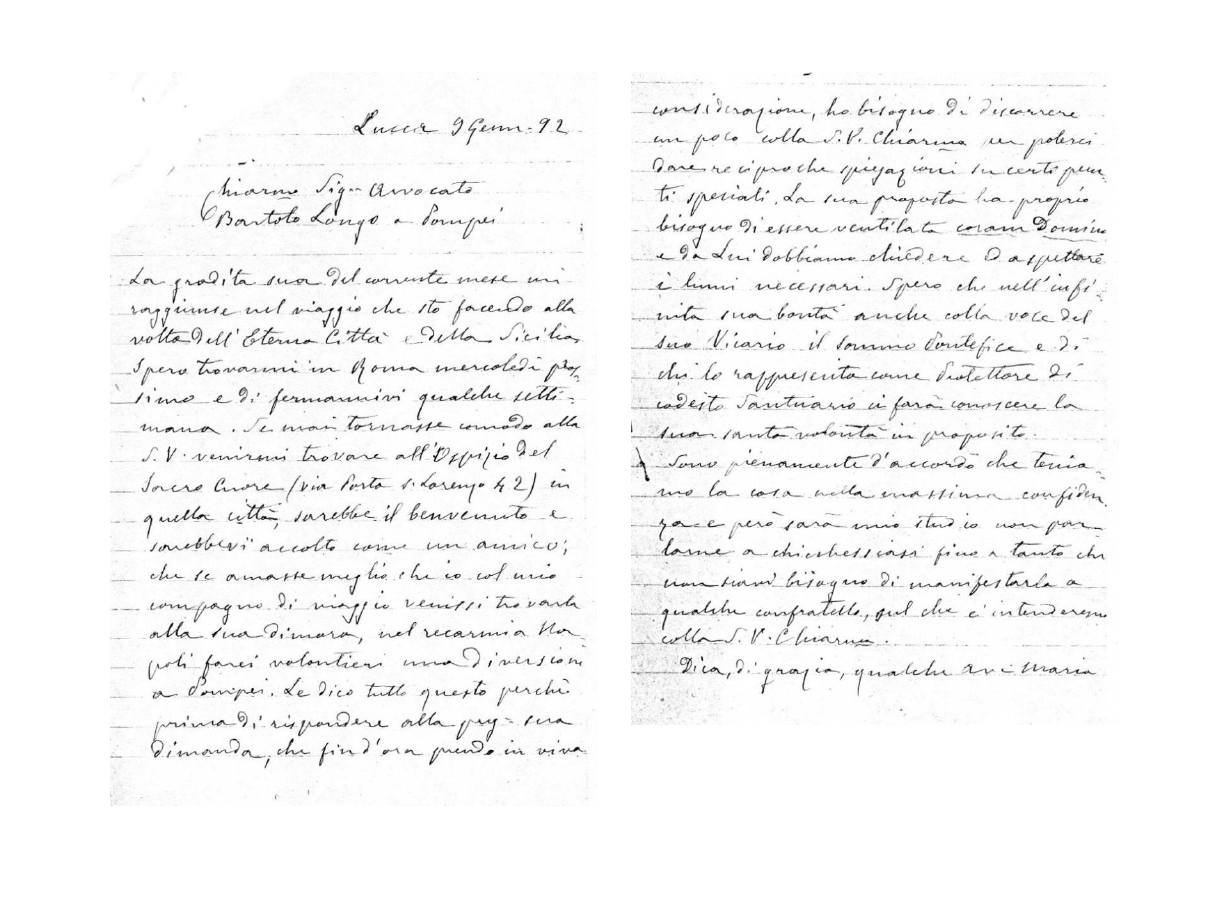 Lucca 9 Genn. 92
Chiarmo Sigr Avvocato
Bartolo Longo a Pompei
La gradita sua del corrente mese mi
raggiunse nel viaggio che sto facendo alla
volta dell'Eterna Città e della Sicilia.
Spero trovarmi in Roma mercoledì pros-
simo e di fermarmivi qualche setti-
mana. Se mai tornasse comodo alla
S. V. venirmi trovare all'Ospizio del
Sacro Cuore (via Porta S. Lorenzo 42) in
quella città, sarebbe il benvenuto e
sarebbevi accolto come un amico;
che se amasse meglio che io col mio
compagno di viaggio venissi trovarla
alla sua dimora, nel recarmi a Na
poli farei volontieri una diversione
a Pompei. Le dico tutto questo perchè
prima di rispondere alla preg- sua
dimanda, che fin d'ora prendo in viva
considerazione, ho bisogno di discorrere
un poco colla S. V. Chiarma per poterci
dare reciproche spiegazioni su certo pun-
ti speciali. La sua proposta ha proprio
bisogno di essere ventilata coram Domino
e da Lui dobbiamo chiedere ed aspettare
i lumi necessari. Spero che nell'infi-
nita sua bontà anche colla voce del
suo Vicario il Sommo Pontefice e di
chi lo rappresenta come Protettore di
codesto Santuario ci farà conoscere la
sua santa volontà in proposito.
Sono pienamente d'accordo che tenia-
mo la cosa nella massima confiden
za e però sarà mio studio non par-
larne a chichessiasi fino a tanto che
non siavi bisogno di manifestarla a
qualche confratello, sul che c'intenderemo
colla S. V. Chiarma.
Dica, di grazia, qualche Ave Maria